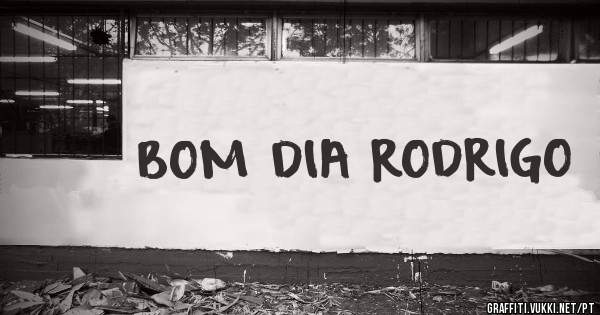 BOM DIA RODRIGO
GRAFFITI.VUKKI.NET/PT